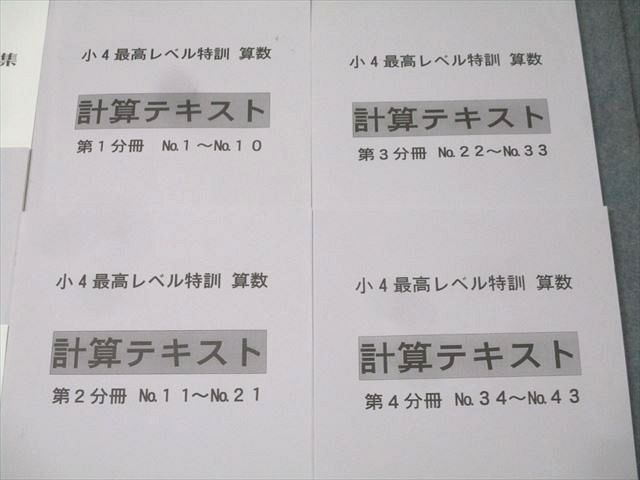 集
小4最高レベル特訓 算数
計算テキスト
第1分冊 No.1～No.10
小4最高レベル特訓 算数
計算テキスト
第3分冊 No.22～No.33
小4最高レベル特訓 算数
計算テキスト
第2分冊 No.11～No.21
小4最高レベル特訓 算数
計算テキスト
第4分冊 No.34～No.43